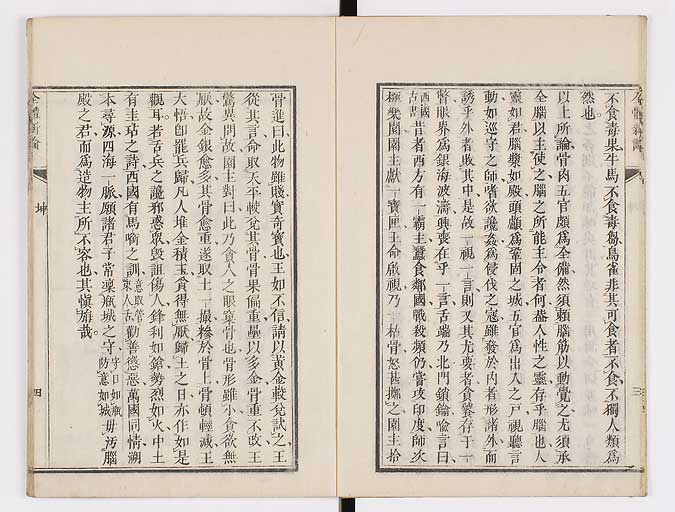 不食毒果牛馬不食毒芻鳥雀非其可食者不食不獨人類爲
然也
以上所論骨肉五官頗爲全備然須賴腦筋以動覺之尤須承
全腦以主使之腦之所能主令者何盡人性之靈存乎腦也人
靈如君腦漿如殿頭顱爲鞏固之城五官爲出入之戸視聽言
動如巡守之師嗜欲讒姦爲侵伐之寇雖發於內者形諸外而
誘乎外者敗其中是故一視一言則又其尤要者食饕存于一
瞥眼界爲銀海波濤興喪在乎一言舌端乃北門鎖鑰喻言曰
西國古書昔者西方有一霸主蠶食鄰國戰殺頻仍嘗攻印度師次
極樂園園主獻一寶匣王命啟視乃一枯骨怒甚擲之園主拾
骨進曰此物雖賤實奇寶也王如不信請以黃金較兌試之王
從其言命取天平較兌其骨骨果偏重疊以多金骨重不改王
驚異問故園主對曰此乃貪人之眼窠骨也骨形雖小貪欲無
厭故金銀愈多其骨愈重遂取土一撮糝於骨上骨頓輕減王
大悟卽罷兵歸凡人堆金積玉貪得無厭歸土之日亦作如是
觀耳若舌兵之讒邪惑衆毀詛傷人鋒利如鎗勢烈如火中土
有圭玷之詩西國有馬喻之訓意取管束人舌勸善懲惡萬國同情溯
本尋源四海一脈願諸君子常凜瓶城之守守口如瓶防意如城毋汚腦
殿之君而爲造物主所不容也其愼旃哉
全體新論
坤
四